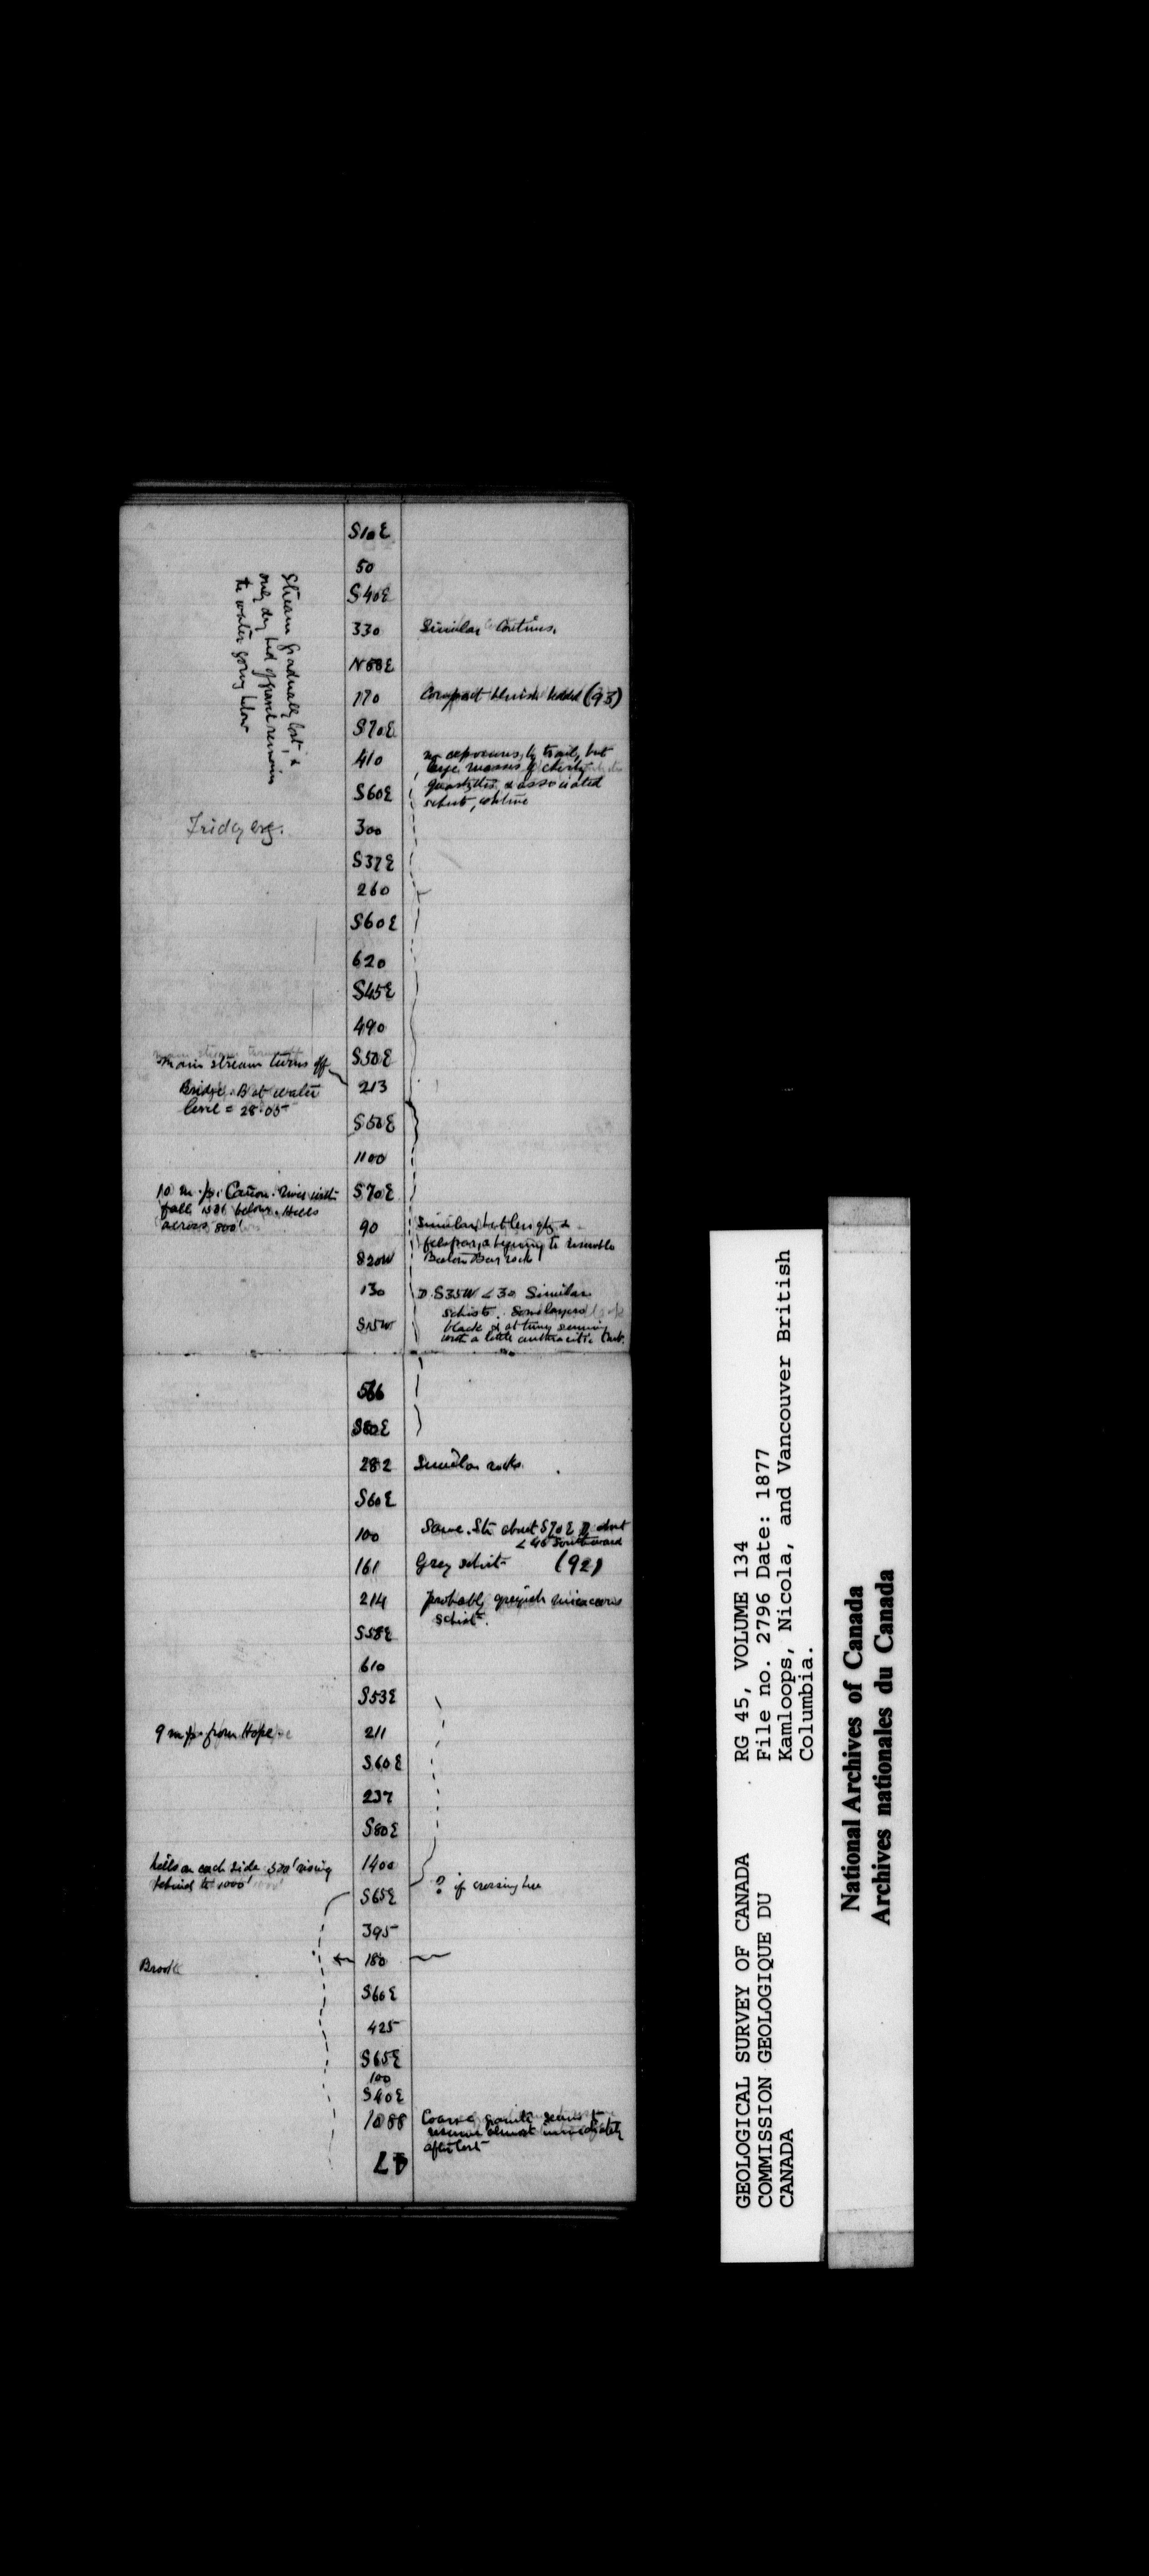 S10E
50
S40E
330 Similar Contins.
N68E
170 Compact bluish bedded (93)
S70E
Stream gradually lost, &
only dry bed of gravel remains
the water going below
410 no exposures by trail, but
large masses of cherty
S60E quartzites & associated
schist, continue
Friday evg.
300
S37E
260
S60E
620
S45E
490
S50E
Main stream turns off
213
Bridge. B at water
level = 28.05
S50E
1100
10 m.p. Cañon. River with
fall below. Hills
across 800'
S70E
90 Similar but &
felspar, & beginning to resemble
S20W Boston Bar rock
130 D. S35W < 30 Similar
schists. Some layers
S15W black & at times seeming
with a little anthracitic
566
S80E
282 Similar rocks.
S60E
100 Same. Str about S70E D about
< 46 Southward
161 Grey schist (92)
214 probably greyish micaceous
schist.
S58E
610
S53E
9 m.p. from Hope
211
S60E
237
S80E
hills on each side 500' rising
behind to 1000'
1400
S65E ? if crossing here
395
Brook
180
S60E
425
S65E
100
S40E
1088 Coarse granite seems to
resume almost immediately
after last
GEOLOGICAL SURVEY OF CANADA
COMMISSION GEOLOGIQUE DU
CANADA
RG 45, VOLUME 134
File no. 2796 Date: 1877
Kamloops, Nicola, and Vancouver British
Columbia.
National Archives of Canada
Archives nationales du Canada